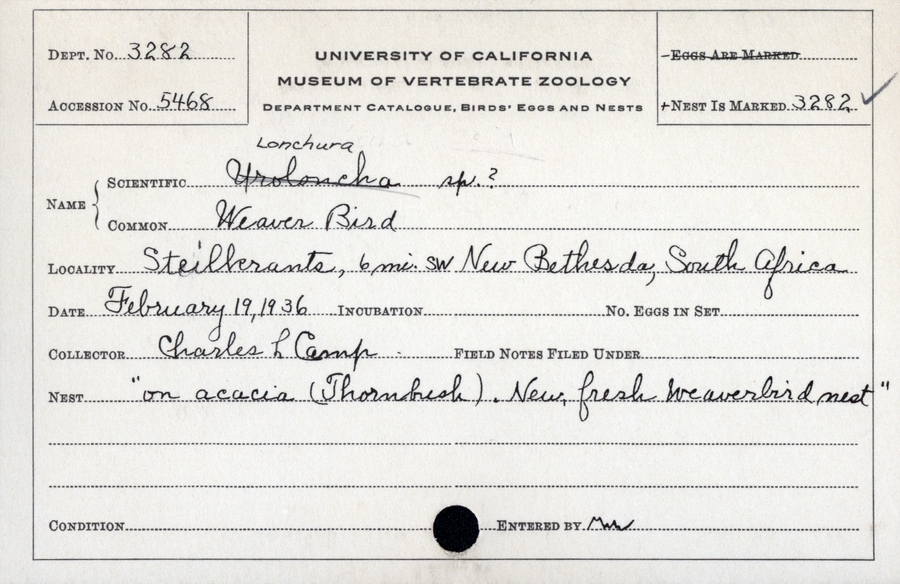 Dept. No. 3282
Accession No. 5468
UNIVERSITY OF CALIFORNIA
MUSEUM OF VERTEBRATE ZOOLOGY
Department Catalogue, Birds' Eggs and Nests
Eggs Are Marked
+Nest Is Marked 3282 ✓
Lonchura
Name { Scientific Uroloncha sp.?
Common Weaver Bird
Locality Steilkrants, 6 mi. SW New Bethesda, South Africa
Date February 19, 1936 Incubation No. Eggs in Set
Collector Charles L Camp Field Notes Filed Under
Nest "on acacia (Thornbush). New, fresh Weaverbird nest"
Condition Entered by